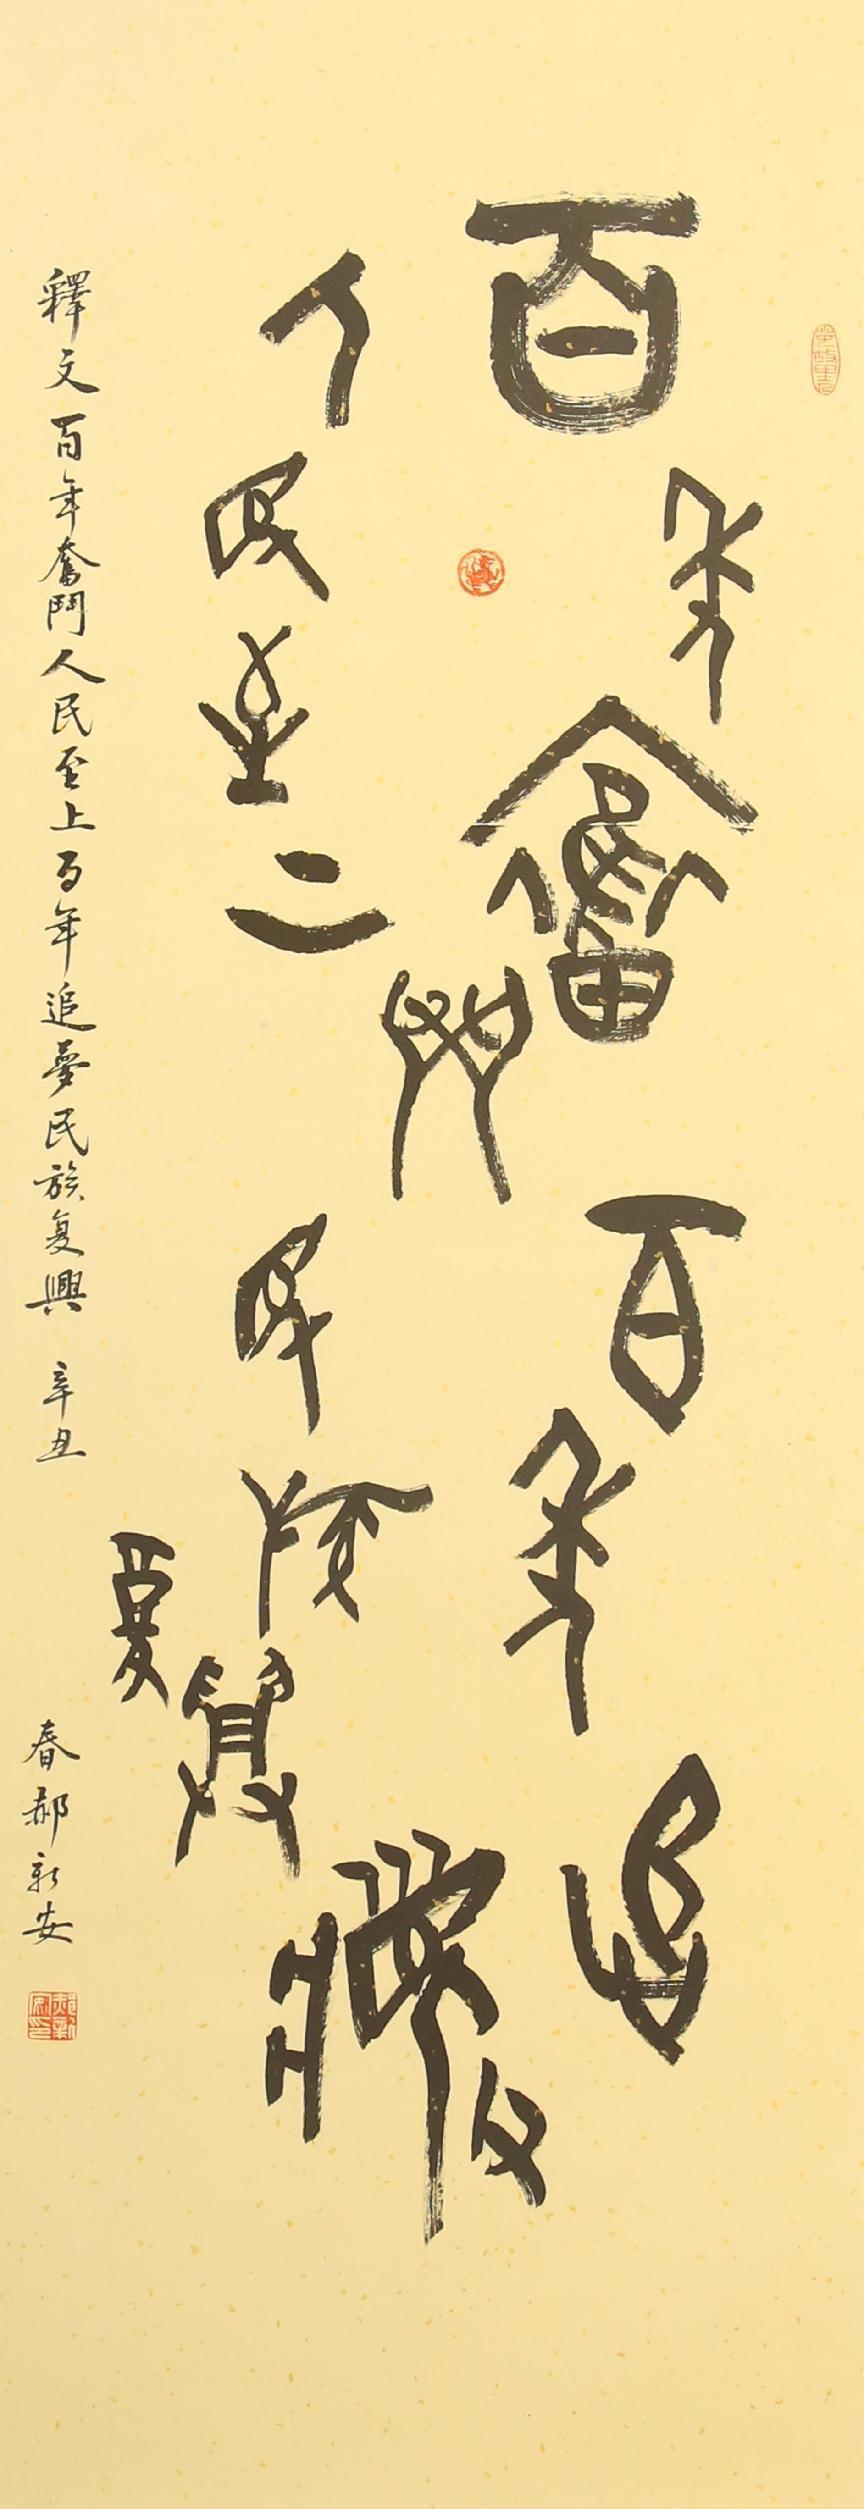 百年奮鬥百年追夢
人民至上民族复興
釋文百年奮鬥人民至上百年追夢民族复興 辛丑
春郝新安